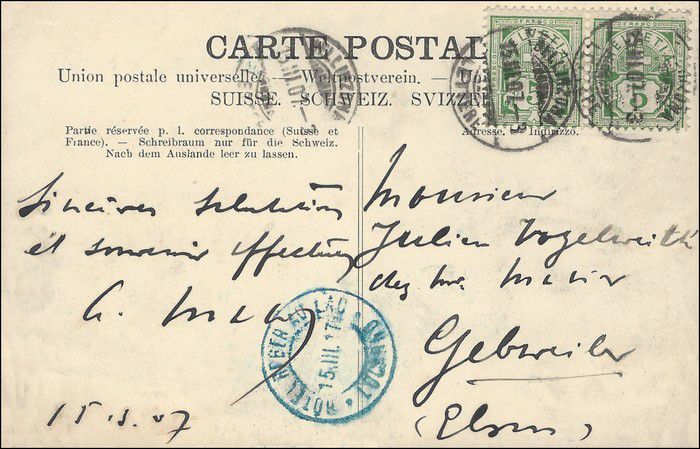 CARTE POSTALE
Union postale universelle. — Weltpostverein. —
SUISSE. SCHWEIZ. SVIZZERA
Partie réservée p. l. correspondance (Suisse et
France). — Schreibraum nur für die Schweiz.
Nach dem Auslande leer zu lassen.
Adresse. — Indirizzo.
HELVETIA
FRANCO
5
HELVETIA
FRANCO
5
Sincères salutations
et souvenir affectueux
Monsieur
Julien Vogelweith
chez Mr.
Gebweiler
(Elsass)
HOTEL AU LAC
15.III.
15.3.07